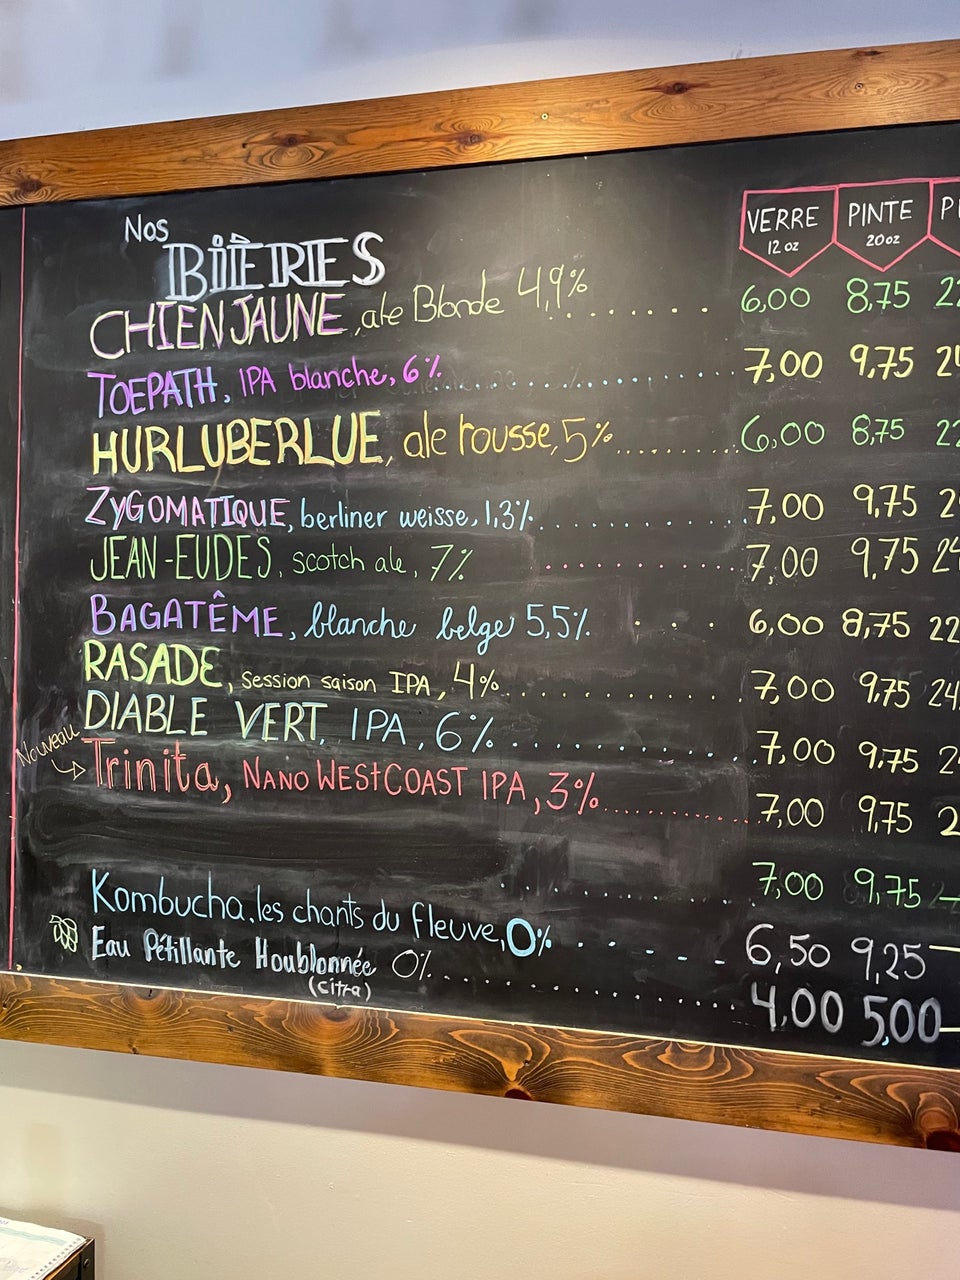 Nos
BIÈRES
VERRE PINTE
12 oz 20 oz
CHIEN JAUNE, ale Blonde 4,9% 6,00 8,75
TOEPATH, IPA blanche, 6% 7,00 9,75
HURLUBERLUE, ale rousse, 5% 6,00 8,75
ZYGOMATIQUE, berliner weisse, 1,3% 7,00 9,75
JEAN-EUDES, scotch ale, 7% 7,00 9,75
BAGATÊME, blanche belge 5,5% 6,00 8,75 22
RASADE, session saison IPA, 4% 7,00 9,75 24
DIABLE VERT, IPA, 6% 7,00 9,75
Nouveau
Trinita, NANO WESTCOAST IPA, 3% 7,00 9,75
7,00 9,75
Kombucha, les chants du fleuve, 0% 6,50 9,25
Eau Pétillante Houblonnée 0% 4,00 5,00
(citra)